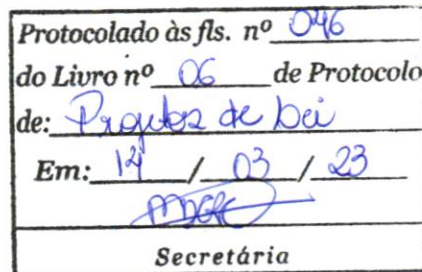 Protocolado às fls. nº 046
do Livro nº 06 de Protocolo
de: Projetos de Lei
Em: 14 / 03 / 23
Secretária